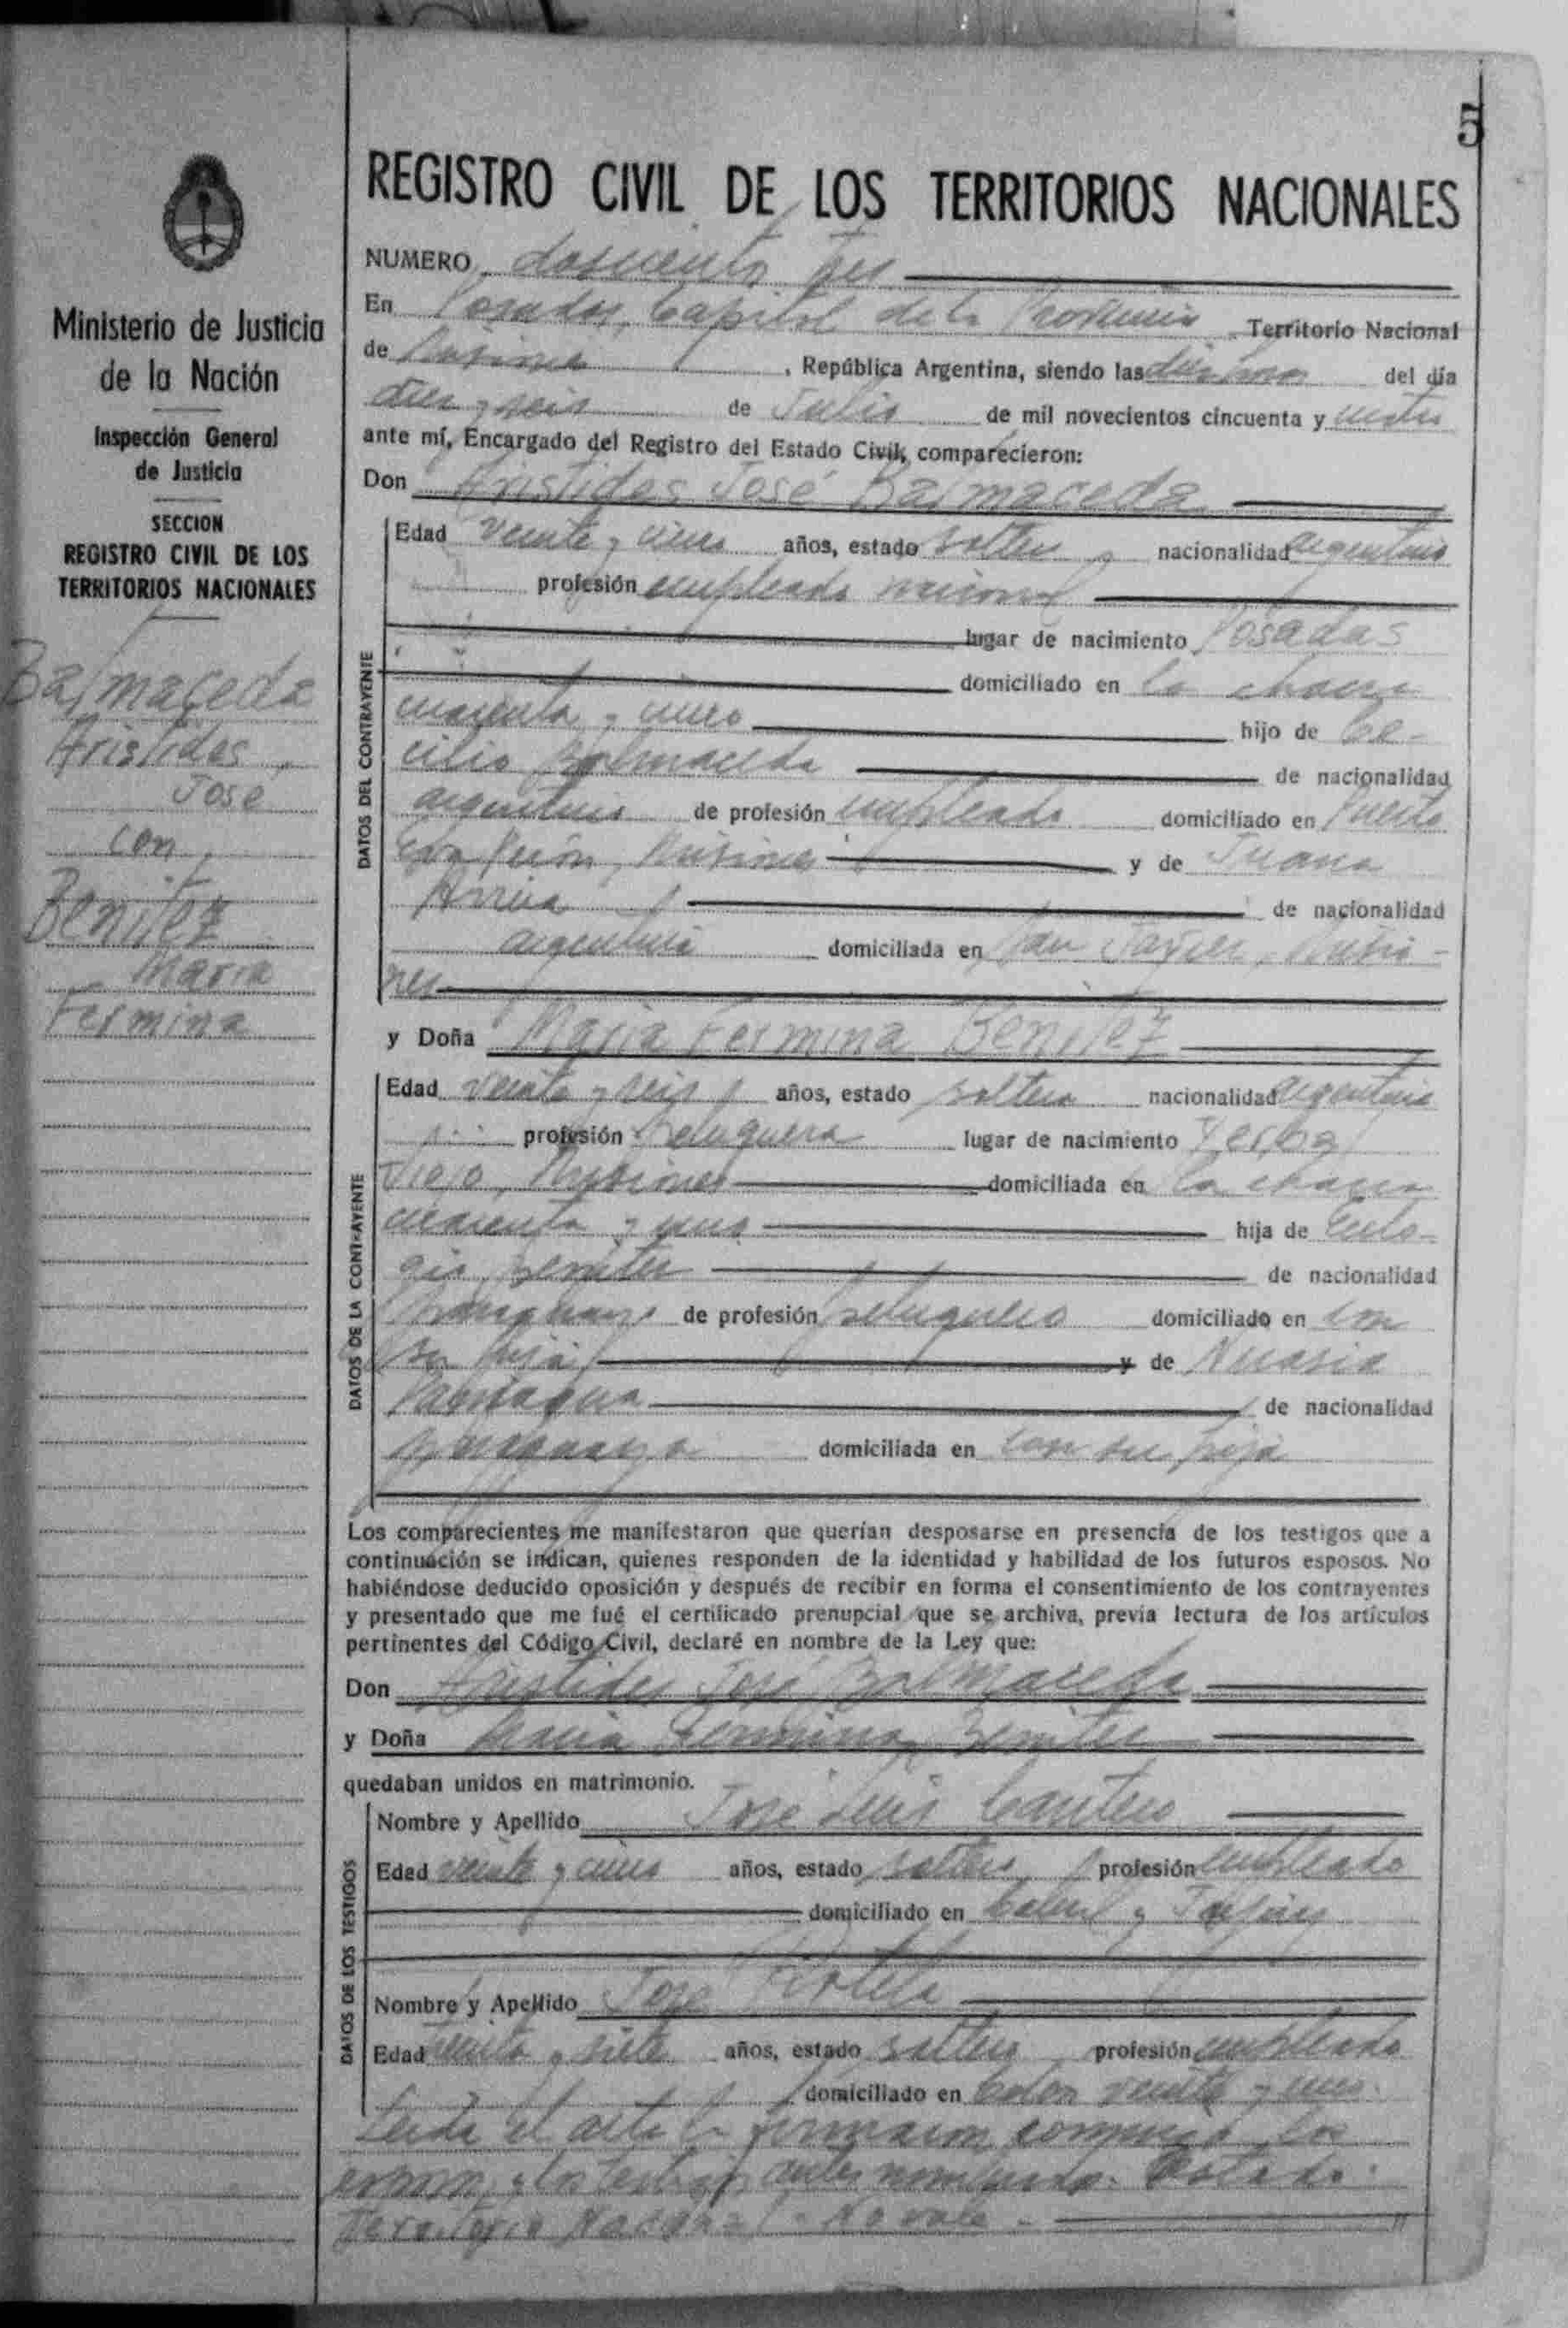 5
REGISTRO CIVIL DE LOS TERRITORIOS NACIONALES
Ministerio de Justicia
de la Nación
Inspección General
de Justicia
SECCION
REGISTRO CIVIL DE LOS
TERRITORIOS NACIONALES
Balmaceda
Aristides
José
con
Benitez
Maria
Fermina
NUMERO doscientos tres
En Posadas, Capital de la Provincia Territorio Nacional
de Misiones, República Argentina, siendo las diez horas del día
diez y seis de Julio de mil novecientos cincuenta y cuatro
ante mí, Encargado del Registro del Estado Civil, comparecieron:
Don Aristides José Balmaceda
DATOS DEL CONTRAYENTE
Edad veinte y cinco años, estado soltero nacionalidad argentino
profesión empleado nacional
lugar de nacimiento Posadas
domiciliado en la chacra
cuarenta y cinco hijo de Ce-
cilio Balmaceda de nacionalidad
argentino de profesión empleado domiciliado en Puerto
Eva Perón, Misiones y de Juana
de nacionalidad
argentina domiciliada en San Javier, Misio-
nes
y Doña Maria Fermina Benitez
DATOS DE LA CONTRAYENTE
Edad veinte y seis años, estado soltera nacionalidad argentina
profesión peluquera lugar de nacimiento Yerbal
Viejo, Misiones domiciliada en la chacra
cuarenta y cinco hija de Eulo-
gio Benitez de nacionalidad
paraguayo de profesión peluquero domiciliado en con
su hija y de Nicasia
de nacionalidad
paraguaya domiciliada en con su hija
Los comparecientes me manifestaron que querían desposarse en presencia de los testigos que a
continuación se indican, quienes responden de la identidad y habilidad de los futuros esposos. No
habiéndose deducido oposición y después de recibir en forma el consentimiento de los contrayentes
y presentado que me fué el certificado prenupcial que se archiva, previa lectura de los artículos
pertinentes del Código Civil, declaré en nombre de la Ley que:
Don Aristides José Balmaceda
y Doña Maria Fermina Benitez
quedaban unidos en matrimonio.
DATOS DE LOS TESTIGOS
Nombre y Apellido José Luis Cantero
Edad veinte y cinco años, estado soltero profesión empleado
domiciliado en Cabral y Jujuy
Nombre y Apellido José Portela
Edad treinta y siete años, estado soltero profesión empleado
domiciliado en Colón veinte y uno.
Leida el acta la firmaron conmigo los
esposos y los testigos antes nombrados. Testado:
Territorio Nacional - No vale -